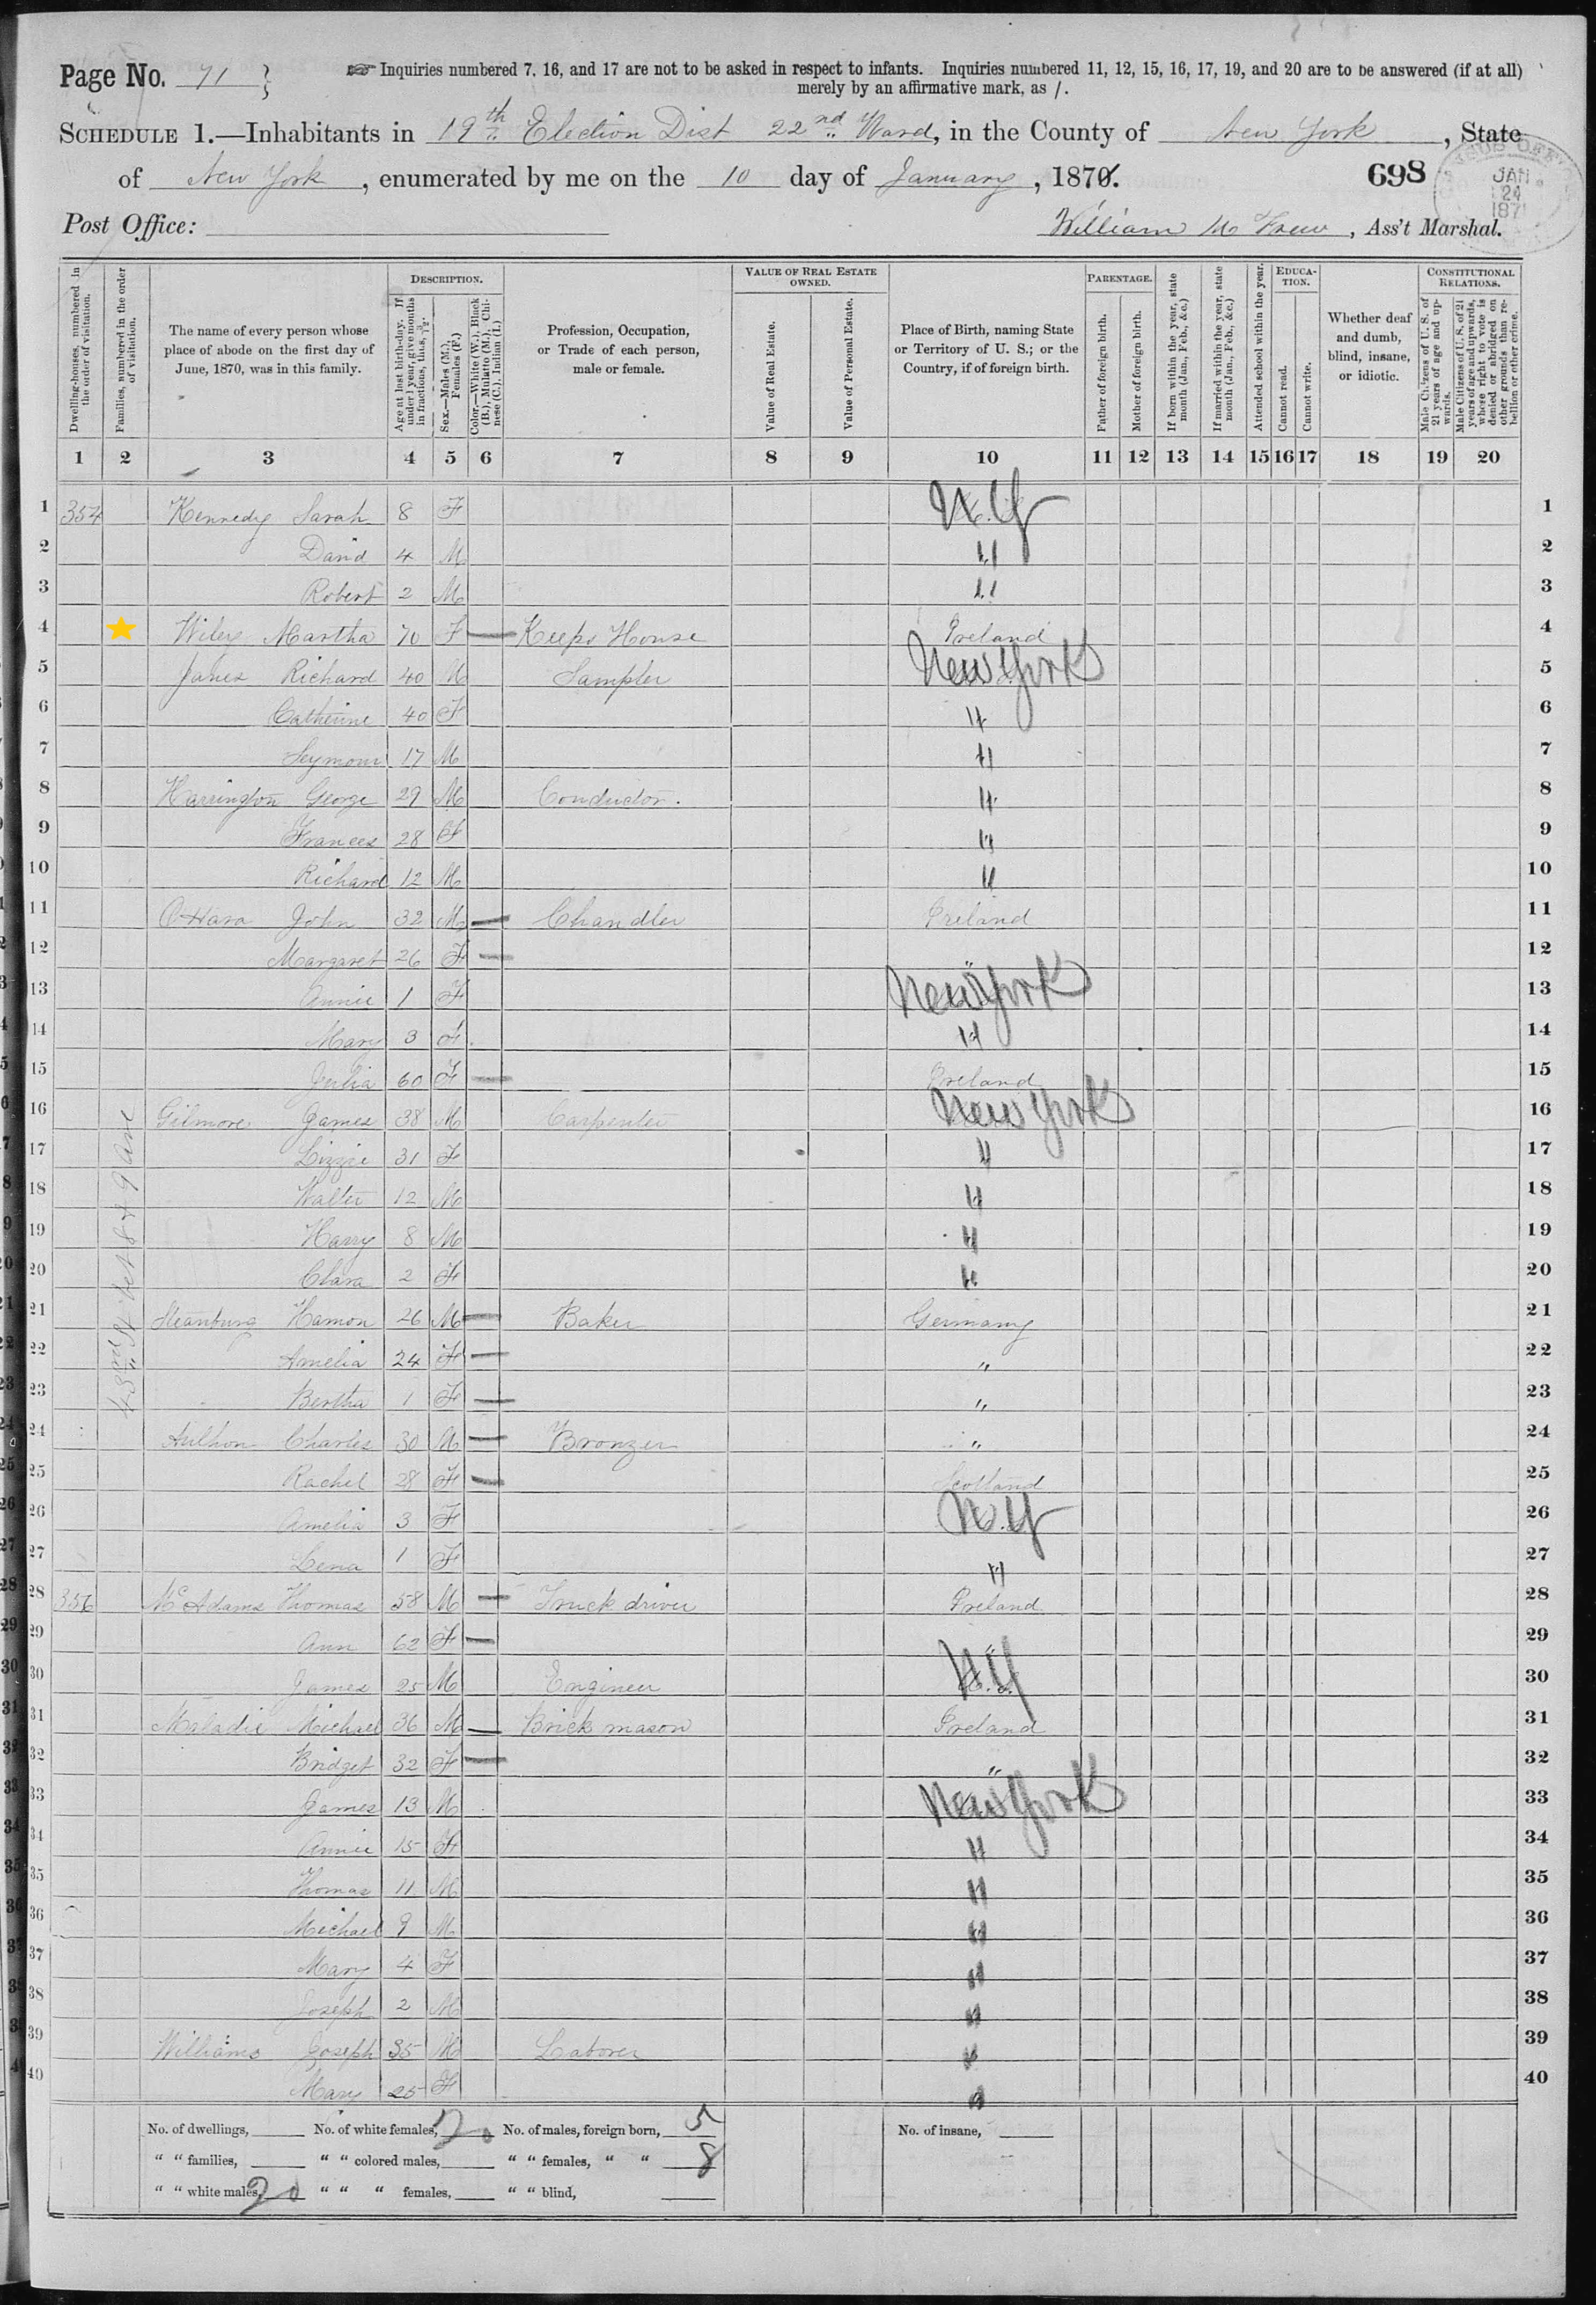 Page No. 71 }
☞ Inquiries numbered 7, 16, and 17 are not to be asked in respect to infants. Inquiries numbered 11, 12, 15, 16, 17, 19, and 20 are to be answered (if at all)
merely by an affirmative mark, as /.
SCHEDULE 1.—Inhabitants in 19th Election Dist 22nd Ward, in the County of New York, State
of New York, enumerated by me on the 10 day of January, 1870.
698
JAN 24 1871
Post Office:
William M Frew, Ass't Marshal.
Dwelling-houses, numbered in the order of visitation.
Families, numbered in the order of visitation.
The name of every person whose place of abode on the first day of June, 1870, was in this family.
DESCRIPTION.
Age at last birth-day. If under 1 year, give months in fractions, thus, 3/12.
Sex.—Males (M.), Females (F.)
Color.—White (W.), Black (B.), Mulatto (M.), Chinese (C.), Indian (I.)
Profession, Occupation, or Trade of each person, male or female.
VALUE OF REAL ESTATE OWNED.
Value of Real Estate.
Value of Personal Estate.
Place of Birth, naming State or Territory of U. S.; or the Country, if of foreign birth.
PARENTAGE.
Father of foreign birth.
Mother of foreign birth.
If born within the year, state month (Jan., Feb., &c.)
If married within the year, state month (Jan., Feb., &c.)
Attended school within the year.
EDUCATION.
Cannot read.
Cannot write.
Whether deaf and dumb, blind, insane, or idiotic.
CONSTITUTIONAL RELATIONS.
Male Citizens of U. S. of 21 years of age and upwards.
Male Citizens of U. S. of 21 years of age and upwards, whose right to vote is denied or abridged on other grounds than rebellion or other crime.
1 2 3 4 5 6 7 8 9 10 11 12 13 14 15 16 17 18 19 20
1 354 Kennedy Sarah 8 F N.Y 1
2 David 4 M " 2
3 Robert 2 M " 3
4 Wiley Martha 70 F Keeps House Ireland 4
5 Richard 40 M Sampler New York 5
6 Catherine 40 F " 6
7 Seymour 17 M " 7
8 Harrington George 29 M Conductor. " 8
9 Frances 28 F " 9
10 Richard 12 M " 10
11 O'Hara John 32 M Chandler Ireland 11
12 Margaret 26 F " 12
13 Annie 1 F New York 13
14 Mary 3 F " 14
15 Julia 60 F Ireland 15
16 Gilmore James 38 M Carpenter New York 16
17 Lizzie 31 F " 17
18 Walter 12 M " 18
19 Harry 8 M " 19
20 Clara 2 F " 20
43rd St bet 8 & 9 Ave
21 Steanburg Hamon 26 M Baker Germany 21
22 Amelia 24 F " 22
23 Bertha 1 F " 23
24 Charles 30 M Bronzer " 24
25 Rachel 28 F Scotland 25
26 Amelia 3 F N.Y 26
27 Lena 1 F " 27
28 356 McAdams Thomas 58 M Truck driver Ireland 28
29 Ann 62 F " 29
30 James 25 M Engineer N.Y 30
31 Maladie Michael 36 M Brick mason Ireland 31
32 Bridget 32 F " 32
33 James 13 M New York 33
34 Annie 15 F " 34
35 Thomas 11 M " 35
36 Michael 9 M " 36
37 Mary 4 F " 37
38 Joseph 2 M " 38
39 Williams Joseph 35 M Laborer " 39
40 Mary 25 F " 40
No. of dwellings, No. of white females, 20 No. of males, foreign born, 5 No. of insane,
" " families, " " colored males, " " females, " " 8
" " white males, 20 " " " females, " " blind,